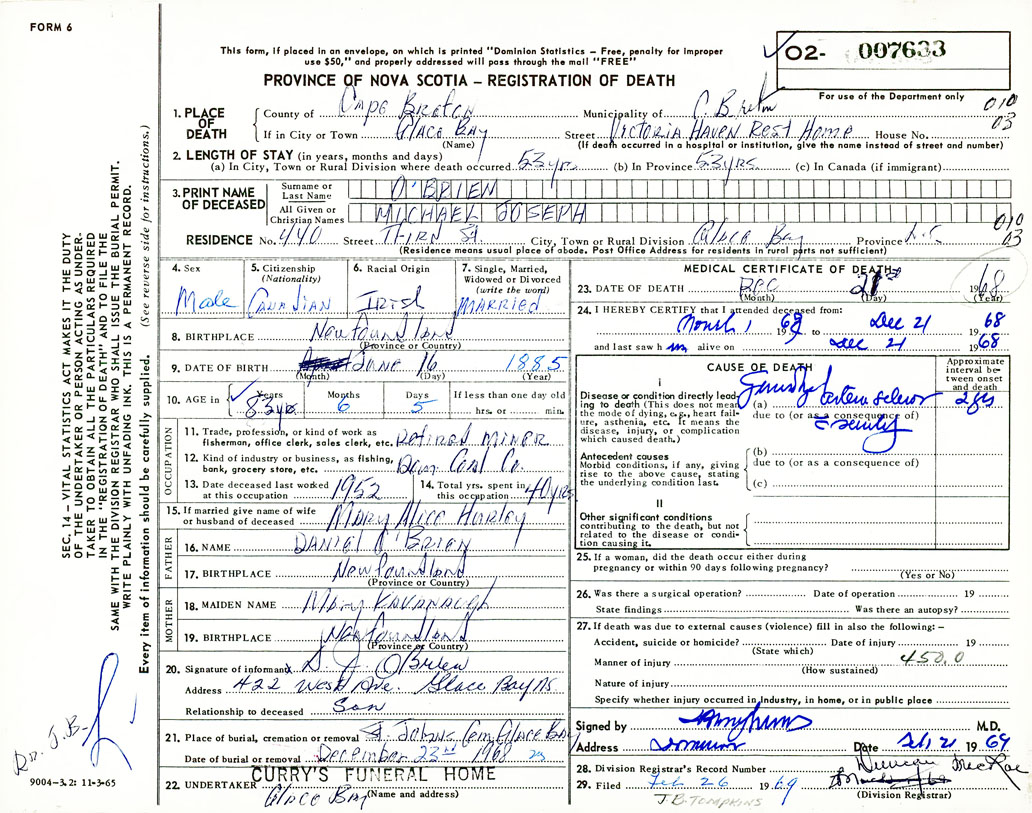 FORM 6
This form, if placed in an envelope, on which is printed "Dominion Statistics – Free, penalty for improper
use $50," and properly addressed will pass through the mail "FREE"
PROVINCE OF NOVA SCOTIA – REGISTRATION OF DEATH
O2- 007633
For use of the Department only
010
03
SEC. 14 – VITAL STATISTICS ACT MAKES IT THE DUTY
OF THE UNDERTAKER OR PERSON ACTING AS UNDER-
TAKER TO OBTAIN ALL THE PARTICULARS REQUIRED
IN THE "REGISTRATION OF DEATH" AND TO FILE THE
SAME WITH THE DIVISION REGISTRAR WHO SHALL ISSUE THE BURIAL PERMIT.
WRITE PLAINLY WITH UNFADING INK. THIS IS A PERMANENT RECORD.
Every item of information should be carefully supplied. (See reverse side for instructions.)
1. PLACE OF DEATH
County of Cape Breton Municipality of C. Breton
If in City or Town Glace Bay Street Victoria Haven Rest Home House No.
(Name) (If death occurred in a hospital or institution, give the name instead of street and number)
2. LENGTH OF STAY (in years, months and days)
(a) In City, Town or Rural Division where death occurred 53 yrs. (b) In Province 53 yrs. (c) In Canada (if immigrant)
3. PRINT NAME OF DECEASED
Surname or Last Name O'BRIEN
All Given or Christian Names MICHAEL JOSEPH
010
03
RESIDENCE No. 440 Street Third St. City, Town or Rural Division Glace Bay Province N.S.
(Residence means usual place of abode. Post Office Address for residents in rural parts not sufficient)
4. Sex Male
5. Citizenship (Nationality) Canadian
6. Racial Origin Irish
7. Single, Married, Widowed or Divorced (write the word) Married
8. BIRTHPLACE Newfoundland
(Province or Country)
9. DATE OF BIRTH June 16 1885
(Month) (Day) (Year)
10. AGE in Years 83 yrs Months 6 Days 5 If less than one day old hrs. or min.
OCCUPATION
11. Trade, profession, or kind of work as fisherman, office clerk, sales clerk, etc. Retired Miner
12. Kind of industry or business, as fishing, bank, grocery store, etc. Dom. Coal Co.
13. Date deceased last worked at this occupation 1952
14. Total yrs. spent in this occupation 40 yrs
15. If married give name of wife or husband of deceased Mary Alice Hurley
FATHER
16. NAME Daniel O'Brien
17. BIRTHPLACE Newfoundland
(Province or Country)
MOTHER
18. MAIDEN NAME Mary Kavanagh
19. BIRTHPLACE Newfoundland
(Province or Country)
20. Signature of informant x D J O'Brien
Address 422 West Ave. Glace Bay NS.
Relationship to deceased Son
21. Place of burial, cremation or removal St Johns Cem Glace Bay
Date of burial or removal December 23rd 1968 23
22. UNDERTAKER CURRY'S FUNERAL HOME
Glace Bay (Name and address)
Dr. J.B.
9004-3.2: 11-3-65
MEDICAL CERTIFICATE OF DEATH
23. DATE OF DEATH Dec 21 1968
(Month) (Day) (Year)
24. I HEREBY CERTIFY that I attended deceased from:
1969 to Dec 21 1968
and last saw him alive on Dec 21 1968
CAUSE OF DEATH
Approximate interval between onset and death
I
Disease or condition directly leading to death (This does not mean the mode of dying, e.g., heart failure, asthenia, etc. It means the disease, injury, or complication which caused death.)
(a) 2 yrs
due to (or as a consequence of)
Senility
Antecedent causes
Morbid conditions, if any, giving rise to the above cause, stating the underlying condition last.
(b)
due to (or as a consequence of)
(c)
II
Other significant conditions contributing to the death, but not related to the disease or condition causing it.
25. If a woman, did the death occur either during
pregnancy or within 90 days following pregnancy?
(Yes or No)
26. Was there a surgical operation? Date of operation 19
State findings Was there an autopsy?
27. If death was due to external causes (violence) fill in also the following: –
Accident, suicide or homicide? Date of injury 19
(State which)
Manner of injury 450.0
(How sustained)
Nature of injury
Specify whether injury occurred in industry, in home, or in public place
Signed by M.D.
Address Dominion Date Feb. 21 1969
28. Division Registrar's Record Number Duncan MacRae
29. Filed Feb 26 1969
(Division Registrar)
J.B. TOMPKINS